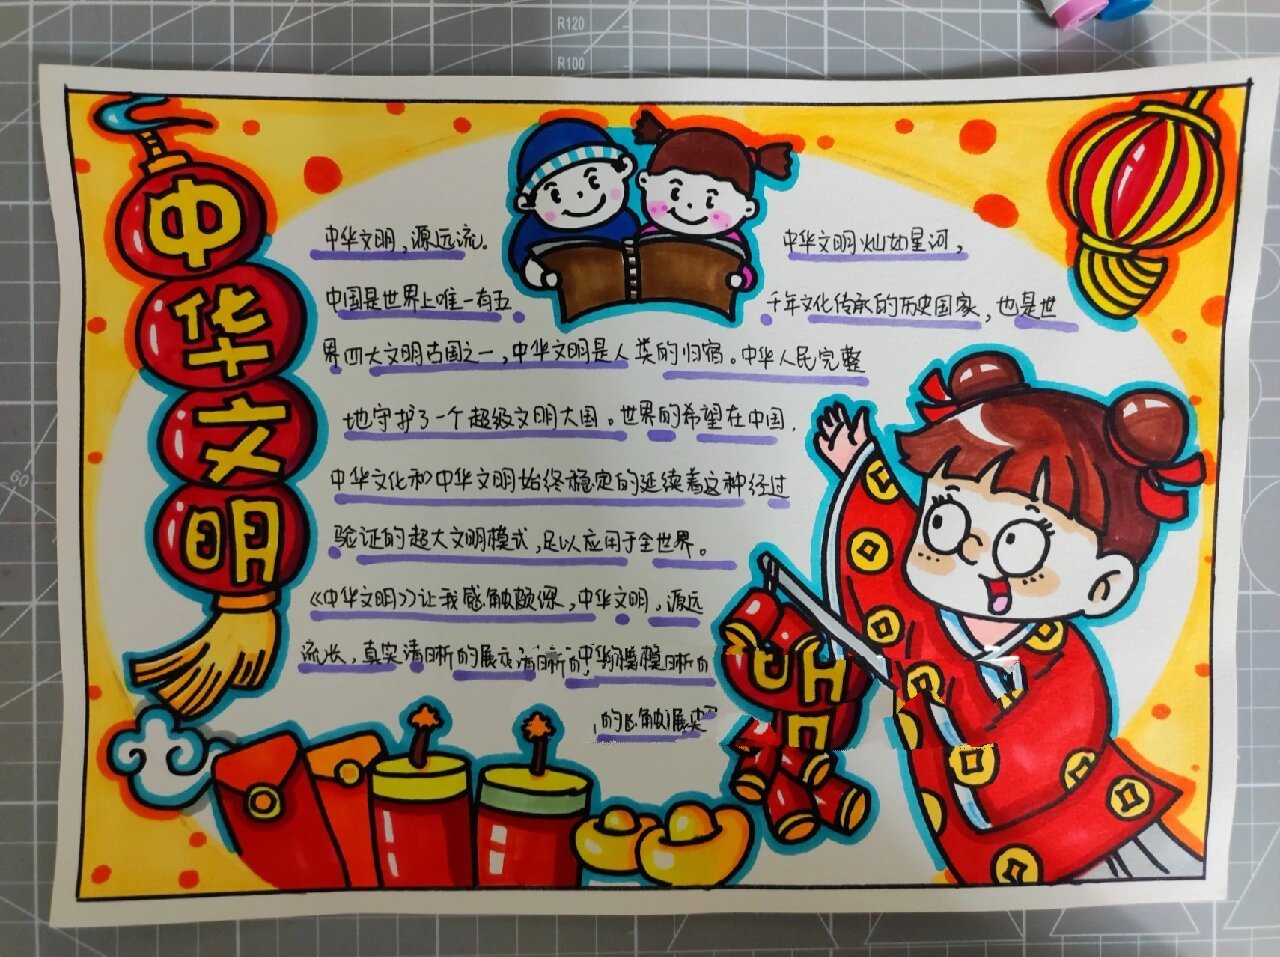 R120
R100
中华文明
中华文明，源远流.
中华文明灿如星河，
中国是世界上唯一有五
千年文化传承的历史国家，也是世
界四大文明古国之一，中华文明是人类的归宿。中华人民完整
地守护了一个超级文明大国。世界的希望在中国.
中华文化和中华文明始终稳定的延续着这种经过
验证的超大文明模式，足以应用于全世界。
《中华文明》让我感触颇深，中华文明，源远
流长，真实清晰的展示清晰的中华